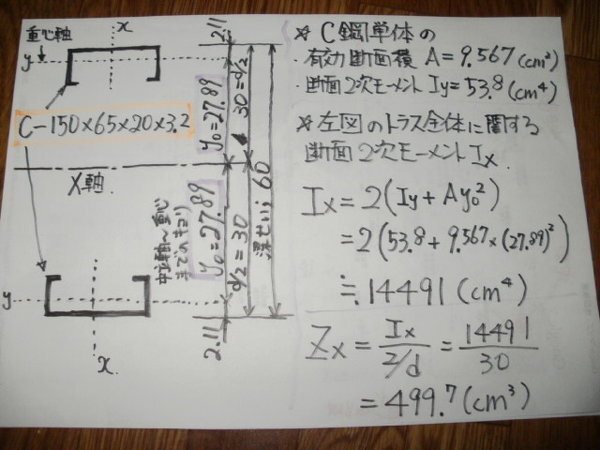 重心軸
x
y
C-150×65×20×3.2
X軸
y
x
2.11
y₀=27.89
30=d/2
中立軸〜重心
までのキョリ
y₀=27.89
d/2=30
梁せい; 60
2.11
☆ C鋼単体の
・有効断面積 A=9.567(cm²)
・断面2次モーメント Iy=53.8(cm⁴)
☆左図のトラス全体に関する
断面2次モーメント Ix.
Ix=2(Iy+Ay₀²)
=2(53.8+9.567×(27.89)²)
≒14491(cm⁴)
Zx=Ix/(2/d)=14491/30
=499.7(cm³)